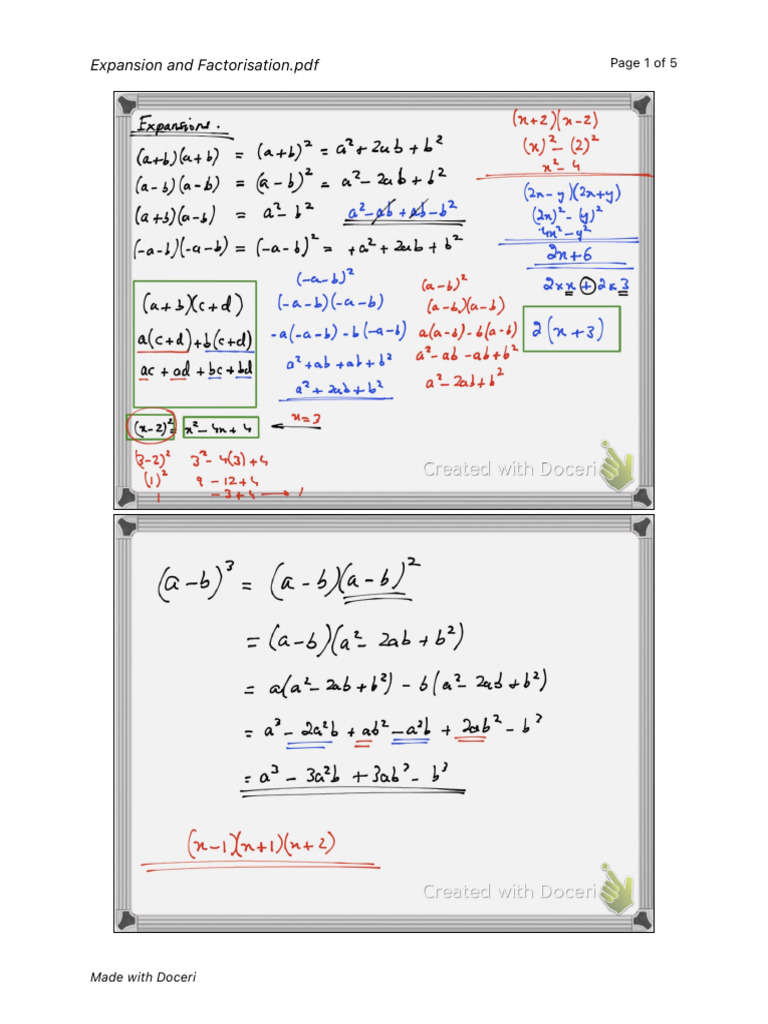 Expansion and Factorisation.pdf
Page 1 of 5
Expansions.
(a+b)(a+b) = (a+b)² = a² + 2ab + b²
(a-b)(a-b) = (a-b)² = a² - 2ab + b²
(a+b)(a-b) = a² - b²
a² - ab + ab - b²
(-a-b)(-a-b) = (-a-b)² = +a² + 2ab + b²
(x+2)(x-2)
(x)² - (2)²
x² - 4
(2x-y)(2x+y)
(2x)² - (y)²
4x² - y²
2x+6
2×x + 2×3
2(x+3)
(a+b)(c+d)
a(c+d)+b(c+d)
ac + ad + bc + bd
(-a-b)²
(-a-b)(-a-b)
-a(-a-b) -b(-a-b)
a² + ab + ab + b²
a² + 2ab + b²
(a-b)²
(a-b)(a-b)
a(a-b) - b(a-b)
a² - ab - ab + b²
a² - 2ab + b²
(x-2)² = x² - 4x + 4 ← x = 3
(3-2)² 3² - 4(3) + 4
(1)² 9 - 12 + 4
1 -3 + 4 → 1
Created with Doceri
(a-b)³ = (a-b)(a-b)²
= (a-b)(a² - 2ab + b²)
= a(a² - 2ab + b²) - b(a² - 2ab + b²)
= a³ - 2a²b + ab² - a²b + 2ab² - b³
= a³ - 3a²b + 3ab² - b³
(x-1)(x+1)(x+2)
Created with Doceri
Made with Doceri